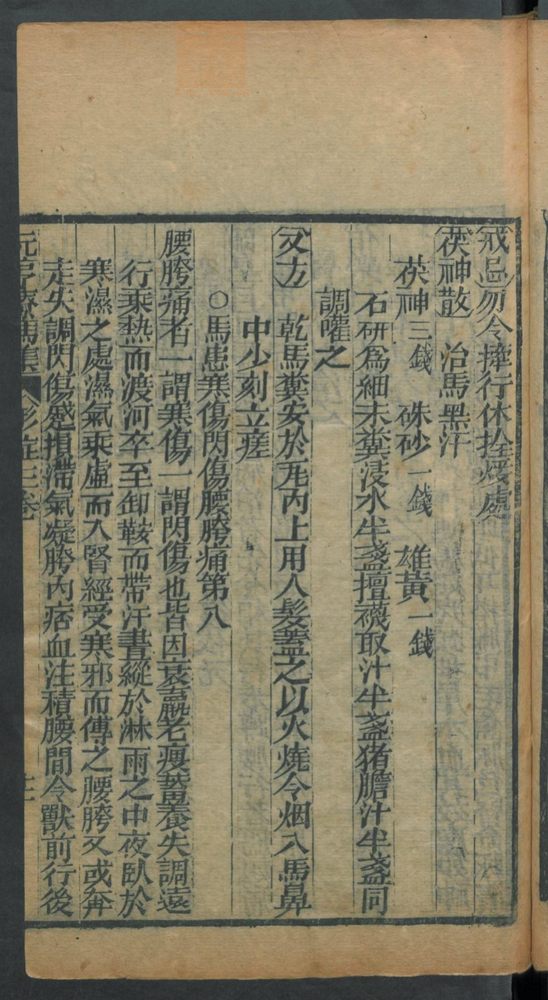 戒忌勿令擁行休拴煖處
茯神散 治馬黑汗
茯神三錢 硃砂一錢 雄黃一錢
石研為細末糞浸水半盞擅襪取汁半盞猪膽汁半盞同
調嚾之
又方 乾馬糞安於瓦内上用人髮蓋之以火燒令烟入馬鼻
中少刻立瘥
○馬患寒傷閃傷腰胯痛第八
腰胯痛者一謂寒傷一謂閃傷也皆因衰羸老瘦蓄養失調遠
行乘熱而渡河卒至卸鞍而帶汗書縱於淋雨之中夜臥於
寒濕之處濕氣乘虛而入腎經受寒邪而傳之腰胯又或奔
走失調閃傷蹙損滯氣凝胯內痞血注積腰間令獸前行後
元亨療馬集 卷